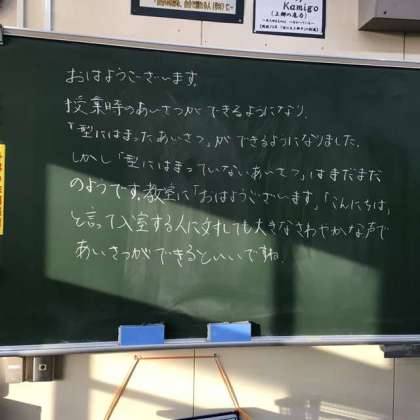 Kamigo
おはようございます。
授業時のあいさつができるようになり、
「型にはまったあいさつ」ができるようになりました。
しかし「型にはまっていないあいさつ」はまだまだ
のようです。教室に「おはようございます」「こんにちは」
と言って入室する人に対しても大きなさわやかな声で
あいさつができるといいですね。